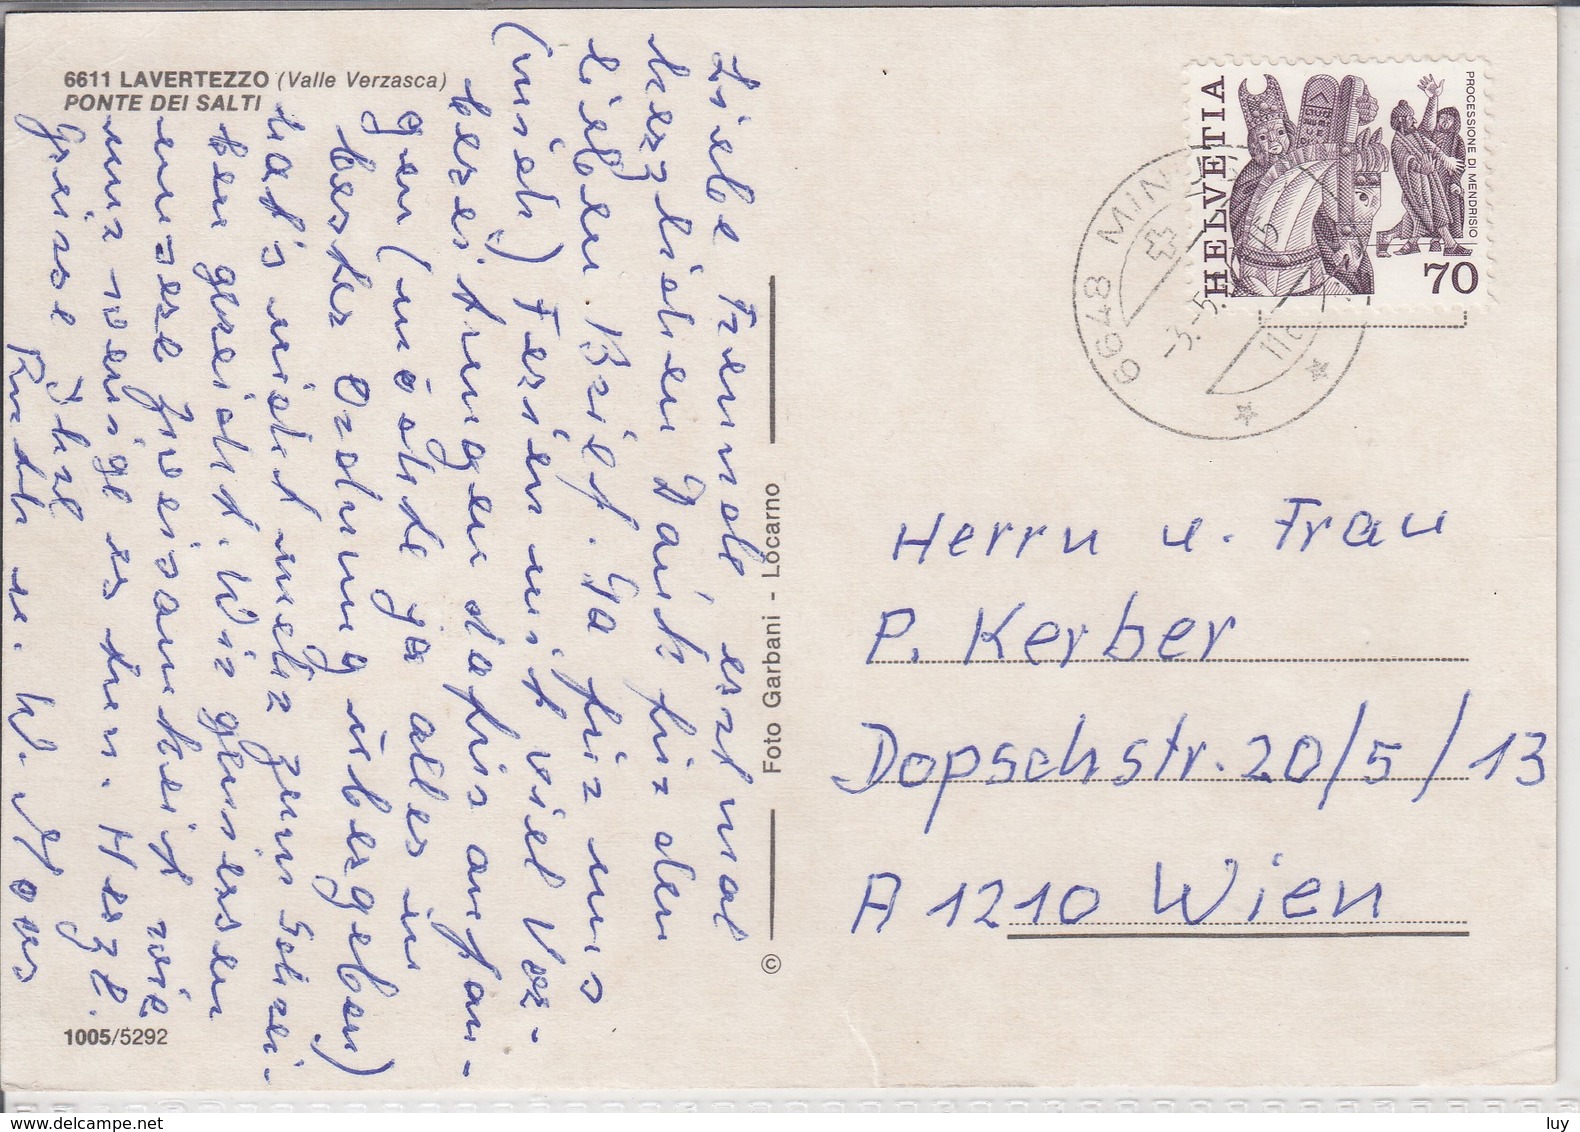 6611 LAVERTEZZO (Valle Verzasca)
PONTE DEI SALTI
Liebe Freunde erstmal
herzlichen Dank für den
lieben Brief. Ja für uns
(mich) Ferien mit viel Vor-
bereitungen dafür anfan-
gen (möchte ja alles in
bester Ordnung übergeben)
hat's nicht mehr zum Schrei-
ben gereicht. Wir geniessen
unsere Zweisamkeit wie
nur wenige es tun. Herzl.
Grüsse Ihre
Ruth u. W.
1005/5292
© Foto Garbani - Locarno
HELVETIA
PROCESSIONE DI MENDRISIO
70
6648 MIN
-3.-5.
Herrn u. Frau
P. Kerber
Dopschstr. 20/5/13
A 1210 Wien
delcampe.net
luy